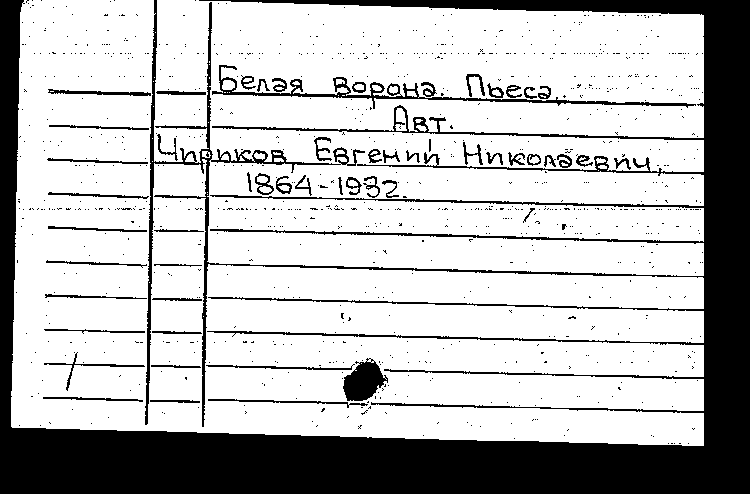 Белая ворона. Пьеса.
Авт.
Чириков, Евгений Николаевич,
1864-1932.